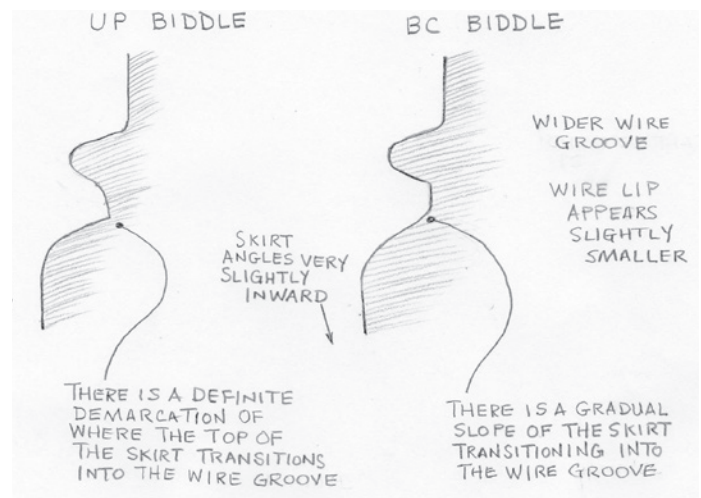 UP BIDDLE
BC BIDDLE
WIDER WIRE
GROOVE
WIRE LIP
APPEARS
SLIGHTLY
SMALLER
SKIRT
ANGLES VERY
SLIGHTLY
INWARD
THERE IS A DEFINITE
DEMARCATION OF
WHERE THE TOP OF
THE SKIRT TRANSITIONS
INTO THE WIRE GROOVE
THERE IS A GRADUAL
SLOPE OF THE SKIRT
TRANSITIONING INTO
THE WIRE GROOVE